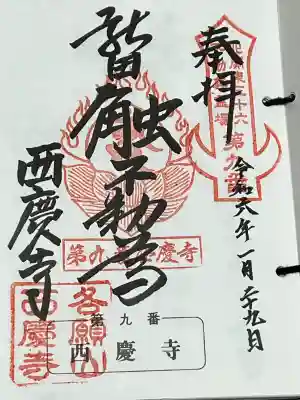 奉拝
北関東三十六
不動尊霊場
第九番
令和六年一月二十九日
触不動尊
第九番西慶寺
西慶寺
各願山
西慶寺
第九番
西慶寺